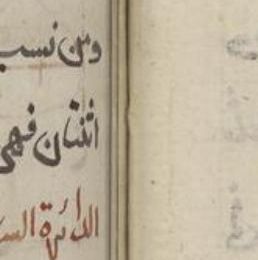 ومن نسب
اثنتان فهي
الدائرة الس